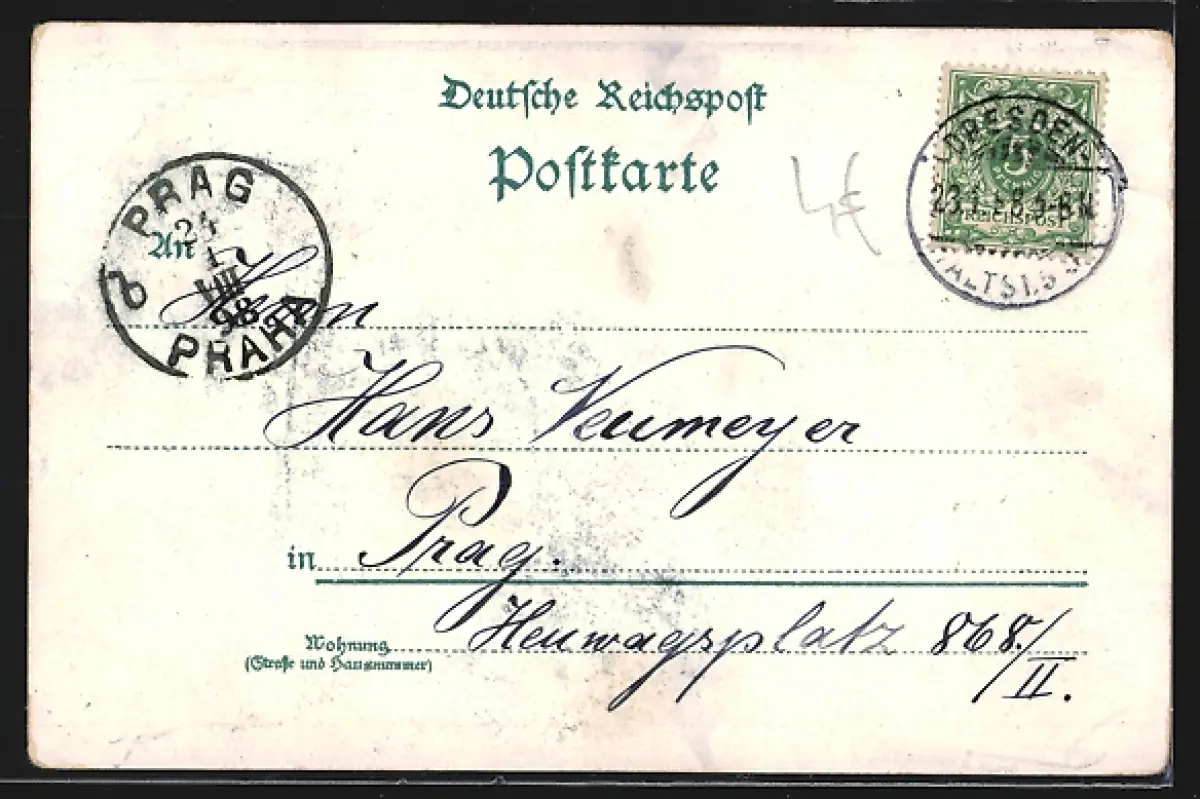 Deutsche Reichspost
Postkarte
DRESDEN-
5
PFENNIG
REICHSPOST
ALTST. 5
4€
PRAG
24
1
VIII
98
PRAHA
An Herrn
Hans Neumeyer
in Prag.
Wohnung Heuwagsplatz 868./
(Straße und Hausnummer)
II.